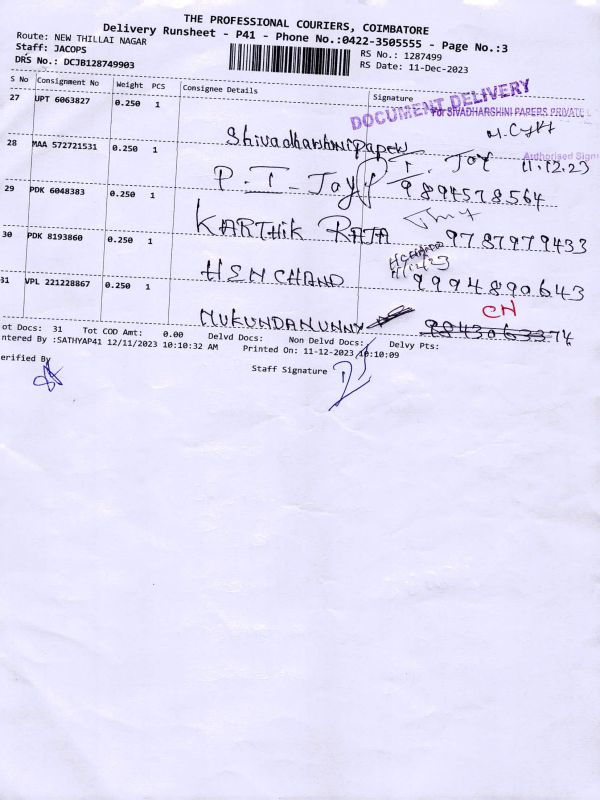 THE PROFESSIONAL COURIERS, COIMBATORE
Delivery Runsheet - P41 - Phone No.:0422-3505555 - Page No.:3
Route: NEW THILLAI NAGAR
RS No.: 1287499
Staff: JACOPS
RS Date: 11-Dec-2023
DRS No.: DCJB128749903
S No Consignment No Weight PCS Consignee Details Signature
DOCUMENT DELIVERY
For SIVADHARSHINI PAPERS PRIVATE L
27 UPT 6063827 0.250 1
Shivadharshni papers
Authorised Sign
28 MAA 572721531 0.250 1
P. I. Joy
P I. Joy 11.12.23
9894578564
29 PDK 6048383 0.250 1
KARTHIK RAJA
9787979433
30 PDK 8193860 0.250 1
HSN CHAND
11/12/23
9994890643
31 VPL 221228867 0.250 1
MUKUNDANUNNY
CN
9843063374
ot Docs: 31 Tot COD Amt: 0.00 Delvd Docs: Non Delvd Docs: Delvy Pts:
ntered By :SATHYAP41 12/11/2023 10:10:32 AM Printed On: 11-12-2023 10:10:09
erified By
Staff Signature